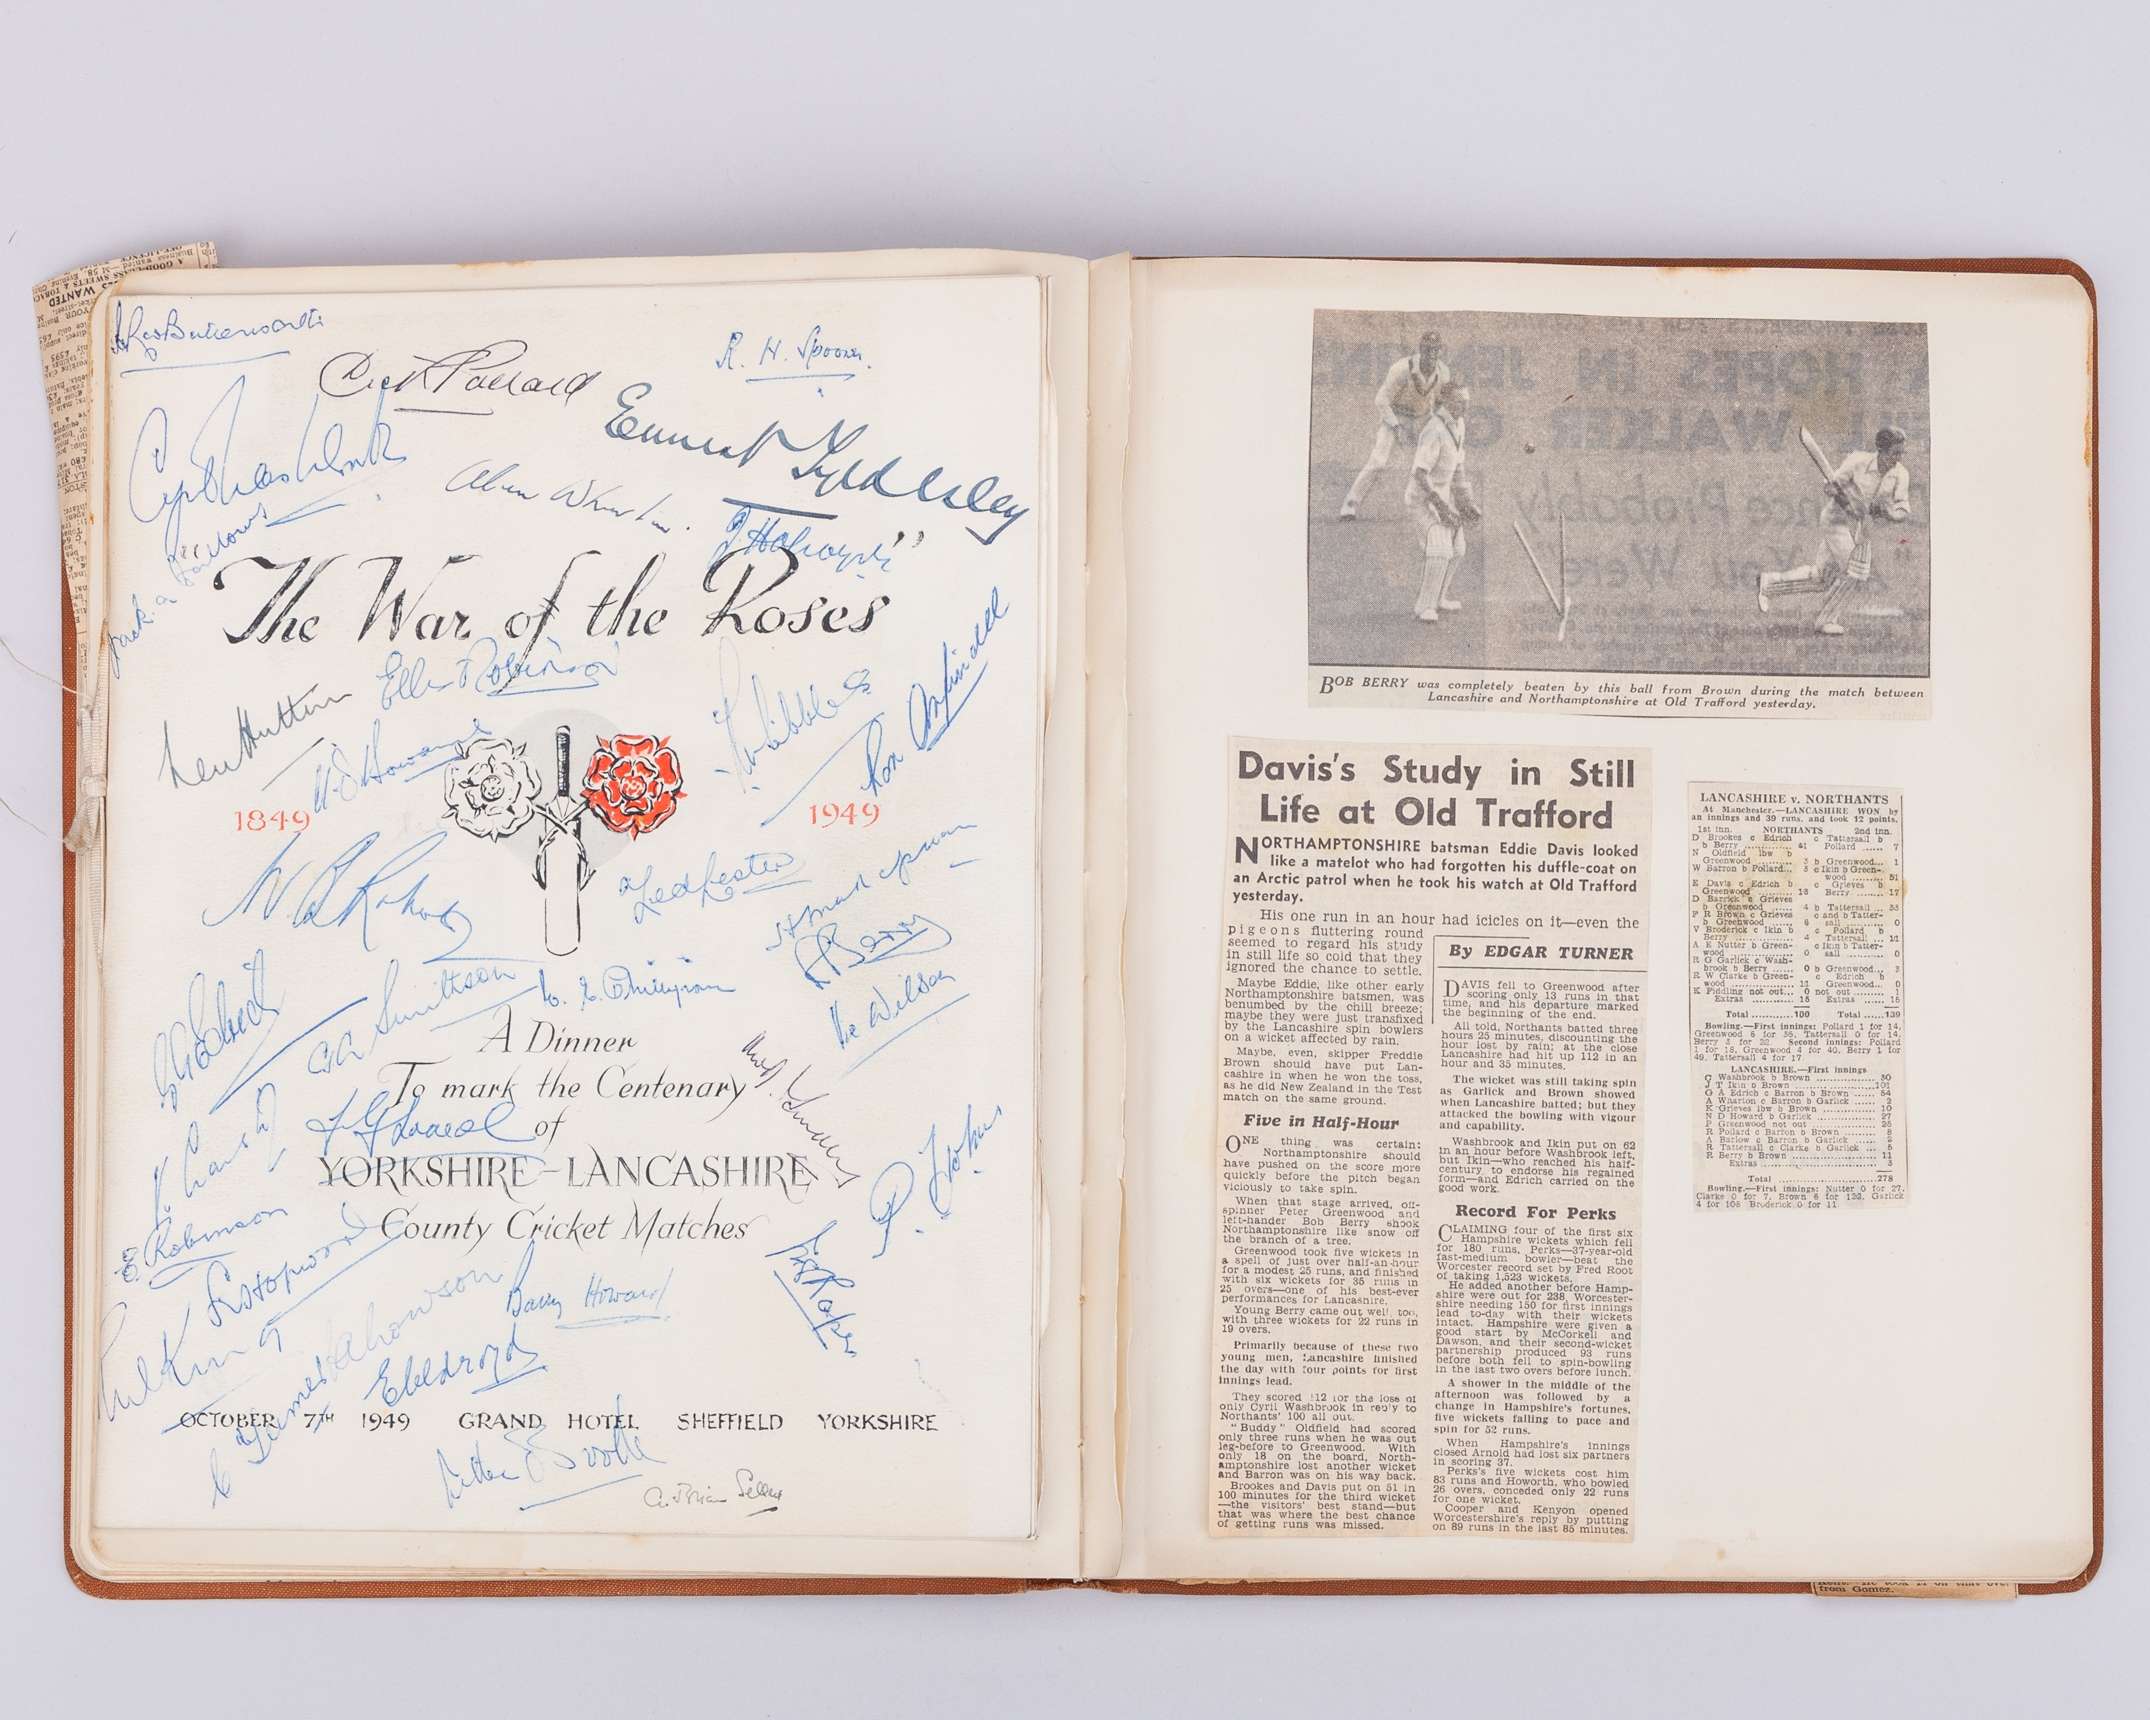 R. H. Spooner.
Dick Pollard
Ernest Tyldesley
Alan Wharton.
"The War of the Roses"
Ellis Robinson
Len Hutton
N. D. Howard
Ron Aspinall
1849
1949
Ted Lester
R Berry
Vic Wilson
G A Smithson
A Dinner
To mark the Centenary
of
YORKSHIRE–LANCASHIRE
County Cricket Matches
E. Robinson
Barry Howard
OCTOBER 7TH 1949 GRAND HOTEL SHEFFIELD YORKSHIRE
A. Brian Sellers
BOB BERRY was completely beaten by this ball from Brown during the match between
Lancashire and Northamptonshire at Old Trafford yesterday.
Davis's Study in Still
Life at Old Trafford
NORTHAMPTONSHIRE batsman Eddie Davis looked
like a matelot who had forgotten his duffle-coat on
an Arctic patrol when he took his watch at Old Trafford
yesterday.
His one run in an hour had icicles on it—even the
pigeons fluttering round
seemed to regard his study
in still life so cold that they
ignored the chance to settle.
Maybe Eddie, like other early
Northamptonshire batsmen, was
benumbed by the chill breeze;
maybe they were just transfixed
by the Lancashire spin bowlers
on a wicket affected by rain.
Maybe, even, skipper Freddie
Brown should have put Lan-
cashire in when he won the toss,
as he did New Zealand in the Test
match on the same ground.
Five in Half-Hour
ONE thing was certain:
Northamptonshire should
have pushed on the score more
quickly before the pitch began
viciously to take spin.
When that stage arrived, off-
spinner Peter Greenwood and
left-hander Bob Berry shook
Northamptonshire like snow off
the branch of a tree.
Greenwood took five wickets in
a spell of just over half-an-hour
for a modest 25 runs, and finished
with six wickets for 35 runs in
25 overs—one of his best-ever
performances for Lancashire.
Young Berry came out well too,
with three wickets for 22 runs in
19 overs.
Primarily because of these two
young men, Lancashire finished
the day with four points for first
innings lead.
They scored 112 for the loss of
only Cyril Washbrook in reply to
Northants' 100 all out.
"Buddy" Oldfield had scored
only three runs when he was out
leg-before to Greenwood. With
only 18 on the board, North-
amptonshire lost another wicket
and Barron was on his way back.
Brookes and Davis put on 51 in
100 minutes for the third wicket
—the visitors' best stand—but
that was where the best chance
of getting runs was missed.
By EDGAR TURNER
DAVIS fell to Greenwood after
scoring only 13 runs in that
time, and his departure marked
the beginning of the end.
All told, Northants batted three
hours 25 minutes, discounting the
hour lost by rain; at the close
Lancashire had hit up 112 in an
hour and 35 minutes.
The wicket was still taking spin
as Garlick and Brown showed
when Lancashire batted; but they
attacked the bowling with vigour
and capability.
Washbrook and Ikin put on 62
in an hour before Washbrook left,
but Ikin—who reached his half-
century to endorse his regained
form—and Edrich carried on the
good work.
Record For Perks
CLAIMING four of the first six
Hampshire wickets which fell
for 180 runs, Perks—37-year-old
fast-medium bowler—beat the
Worcester record set by Fred Root
of taking 1,523 wickets.
He added another before Hamp-
shire were out for 238, Worcester-
shire needing 150 for first innings
lead to-day with their wickets
intact. Hampshire were given a
good start by McCorkell and
Dawson, and their second-wicket
partnership produced 93 runs
before both fell to spin-bowling
in the last two overs before lunch.
A shower in the middle of the
afternoon was followed by a
change in Hampshire's fortunes,
five wickets falling to pace and
spin for 52 runs.
When Hampshire's innings
closed Arnold had lost six partners
in scoring 37.
Perks's five wickets cost him
83 runs and Howorth, who bowled
26 overs, conceded only 22 runs
for one wicket.
Cooper and Kenyon opened
Worcestershire's reply by putting
on 89 runs in the last 85 minutes.
LANCASHIRE v. NORTHANTS
At Manchester.—LANCASHIRE WON by
an innings and 39 runs, and took 12 points.
1st inn. NORTHANTS 2nd inn.
D Brookes c Edrich c Tattersall b
b Berry 41 Pollard 7
N Oldfield lbw b
Greenwood 3 b Greenwood... 1
W Barron b Pollard... 5 c Ikin b Green-
wood 51
E Davis c Edrich b c Grieves b
Greenwood 13 Berry 17
D Barrick c Grieves
b Greenwood 4 b Tattersall 33
F R Brown c Grieves c and b Tatter-
b Greenwood 6 sall 0
V Broderick c Ikin b c Pollard b
Berry 4 Tattersall 11
A E Nutter b Green- c Ikin b Tatter-
wood 0 sall 0
R G Garlick c Wash-
brook b Berry 0 b Greenwood... 3
R W Clarke b Green- c Edrich b
wood 11 Greenwood... 0
K Fiddling not out... 0 not out 1
Extras 15 Extras 15
Total 100 Total 139
Bowling.—First innings: Pollard 1 for 14,
Greenwood 6 for 35, Tattersall 0 for 14,
Berry 3 for 22. Second innings: Pollard
1 for 18, Greenwood 4 for 40, Berry 1 for
49, Tattersall 4 for 17.
LANCASHIRE.—First innings
C Washbrook b Brown 30
J T Ikin b Brown 101
G A Edrich c Barron b Brown 54
A Wharton c Barron b Garlick 2
K Grieves lbw b Brown 10
N D Howard b Garlick 27
P Greenwood not out 25
R Pollard c Barron b Brown 8
A Barlow c Barron b Garlick 2
R Tattersall c Clarke b Garlick 5
R Berry b Brown 11
Extras 3
Total 278
Bowling.—First innings: Nutter 0 for 27,
Clarke 0 for 7, Brown 6 for 122, Garlick
4 for 108 Broderick 0 for 11
from Gomez.